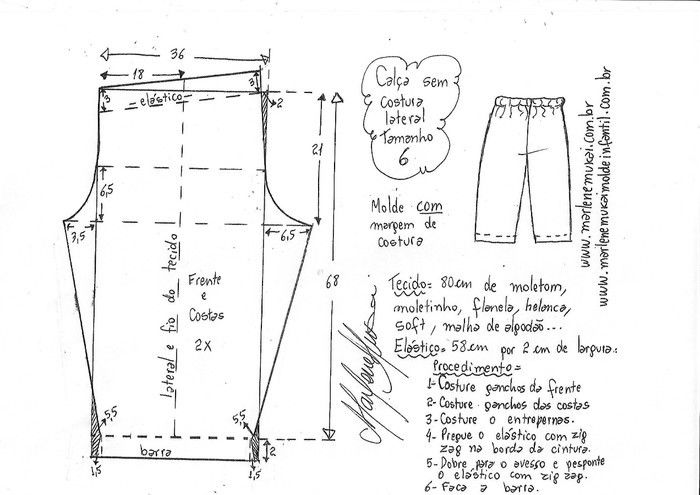 36
18
3
3
elástico
2
21
6,5
3,5
6,5
68
lateral e fio do tecido
Frente
e
Costas
2X
5,5
5,5
barra
2
1,5
1,5
Calça sem
Costura
lateral
Tamanho
6
Molde com
margem de
costura
www.marlenemukai.com.br
www.marlenemukaimoldeinfantil.com.br
Tecido= 80cm de moletom,
moletinho, flanela, helanca,
soft, malha de algodão...
Elástico= 58cm por 2 cm de largura.
Procedimento=
1- Costure ganchos da frente
2- Costure ganchos das costas
3- Costure o entrepernas.
4- Pregue o elástico com zig
zag na borda da cintura.
5- Dobre para o avesso e pesponte
o elástico com zig zag.
6- Faça a barra.